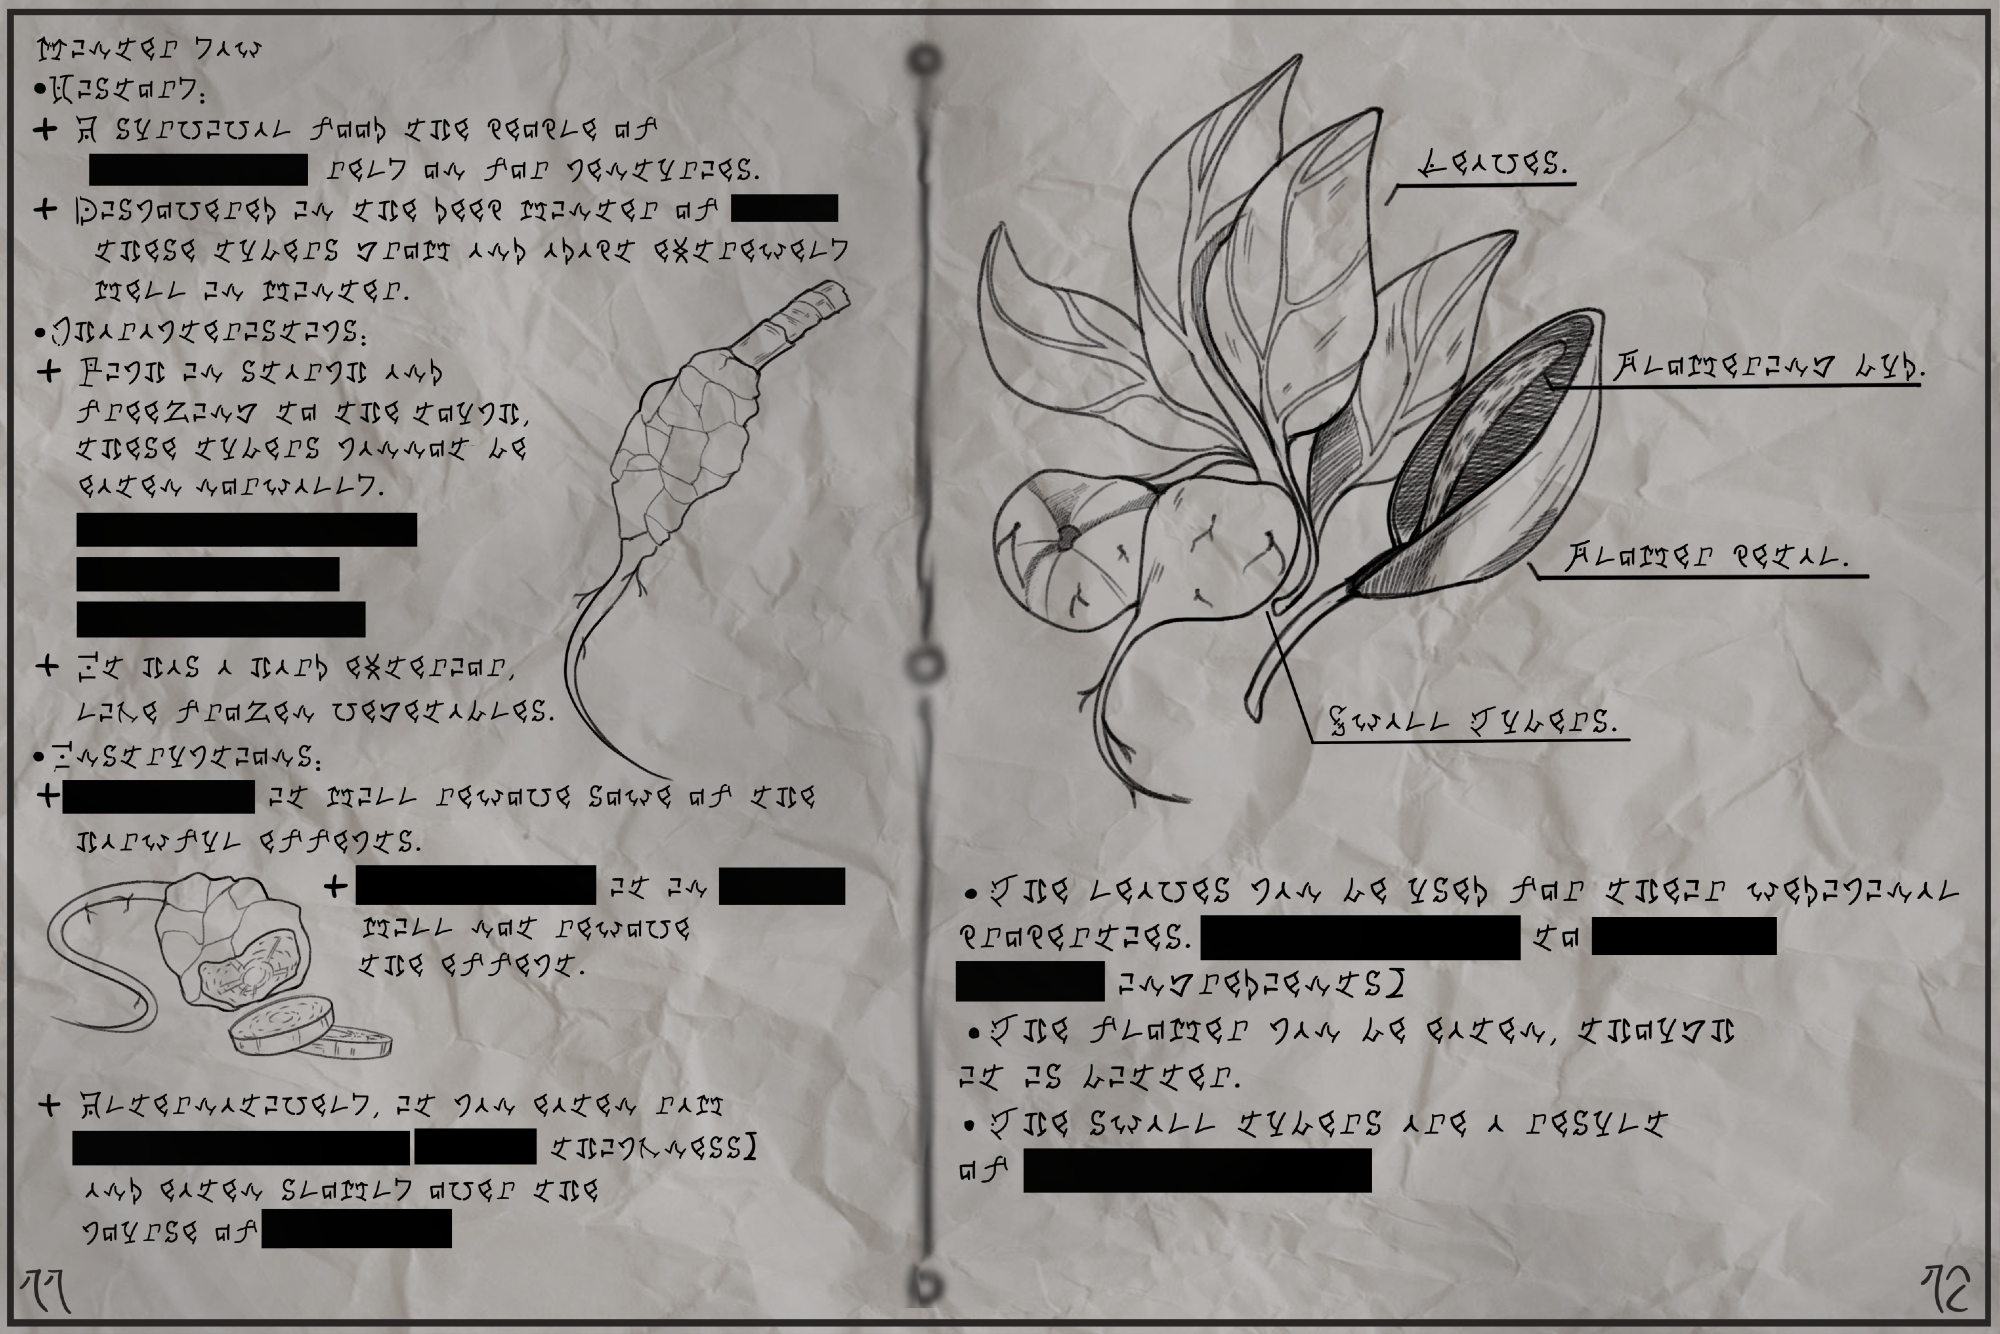 Winter Yam
•History:
+ A survival food the people of
rely on for centuries.
+ Discovered in the deep winter of
these tubers grow and adapt extremely
well in winter.
•Characteristics:
+ Rich in starch and
freezing to the touch,
these tubers cannot be
eaten normally.
+ It has a hard exterior,
like frozen vegetables.
•Instructions:
+ it will remove some of the
harmful effects.
+ it in
will not remove
the effect.
+ Alternatively, it can eaten raw
thickness]
and eaten slowly over the
course of
11
Leaves.
Flowering bud.
Flower petal.
Small Tubers.
• The leaves can be used for their medicinal
properties. to
ingredients]
• The flower can be eaten, though
it is bitter.
• The small tubers are a result
of
12